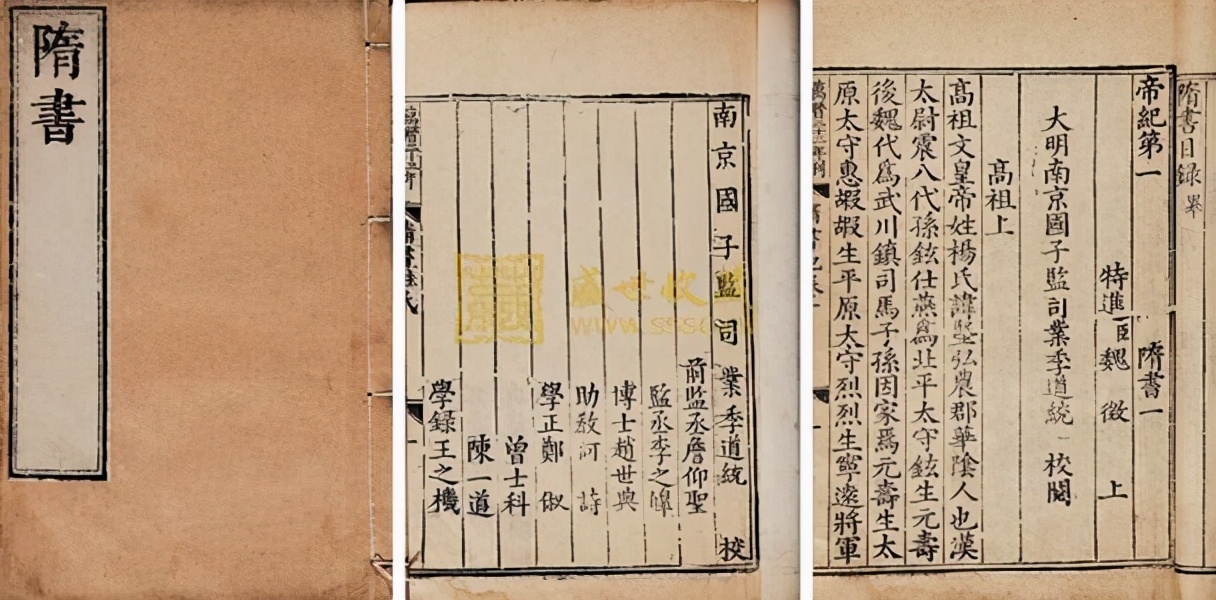 隋書
南京國子監司業季道統 校
前監丞詹仰聖
監丞李之皥
博士趙世典
助教河 詩
學正鄭 俶
曾士科
陳一道
學録王之機
隋書目録
帝紀第一 隋書一
特進臣魏 徵 上
大明南京國子監司業季道統 校閱
高祖上
高祖文皇帝姓楊氏諱堅弘農郡華陰人也漢
太尉震八代孫鉉仕燕爲北平太守鉉生元壽
後魏代爲武川鎮司馬子孫因家焉元壽生太
原太守惠嘏嘏生平原太守烈烈生寧遠將軍
盛世收藏